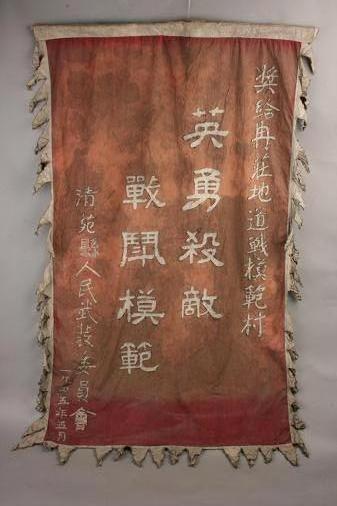 奬給冉莊地道戰模範村
英勇殺敵
戰鬥模範
清苑縣人民武裝委員會
一九四五年五月